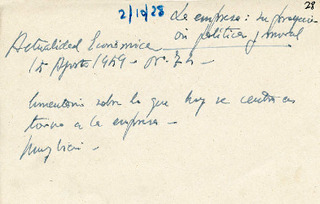 28
2/10/28
La empresa: su proyección
política y moral
Actualidad Económica
15 Agosto 1959 - nº 74
Comentario sobre lo que hoy se centra en
torno a la empresa -
Muy bien -